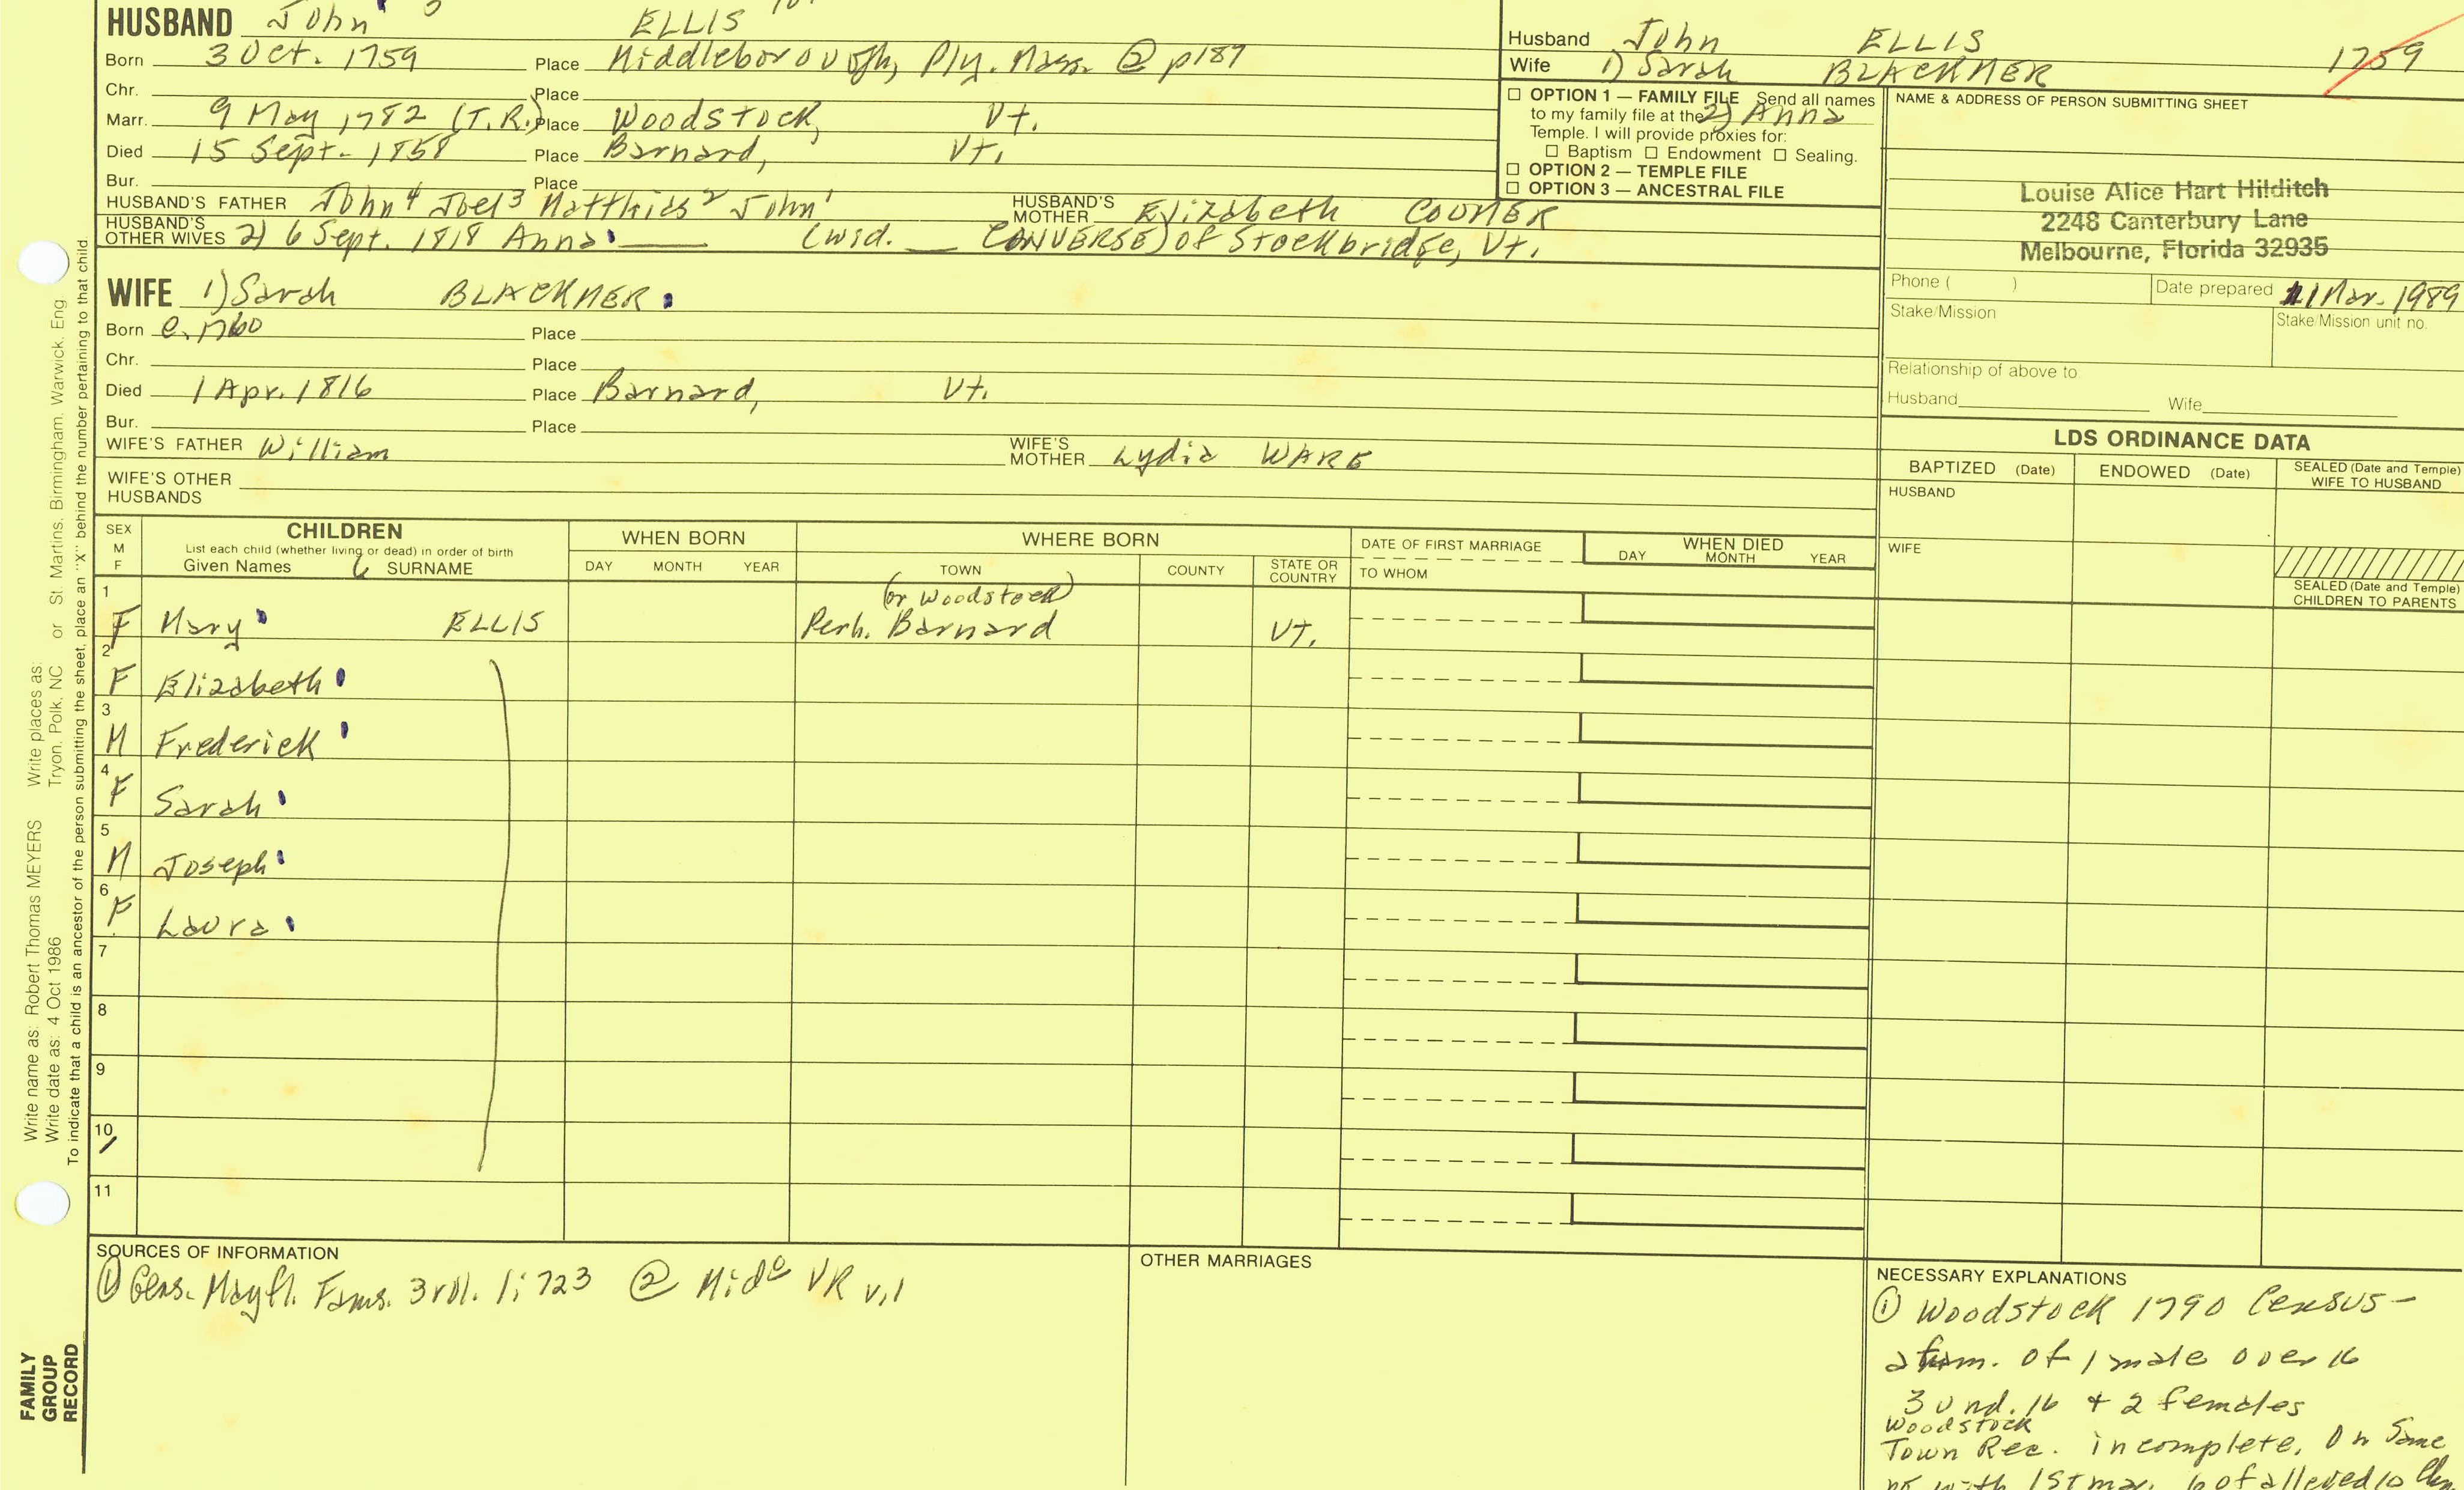 HUSBAND John ELLIS
Born 3 Oct. 1759 Place Middleborough, Ply. Mass. @ p187
Chr. Place
Marr. 9 May 1782 (T.R.) Place Woodstock, Vt.
Died 15 Sept. 1858 Place Barnard, Vt.
Bur. Place
HUSBAND'S FATHER John⁴ Joel³ Matthias² John¹ HUSBAND'S MOTHER Elizabeth
HUSBAND'S OTHER WIVES 2) 6 Sept. 1818 Anna (wid. CONVERSE) of Stockbridge, Vt.
WIFE 1) Sarah BLACKMER
Born c. 1760 Place
Chr. Place
Died 1 Apr. 1816 Place Barnard, Vt.
Bur. Place
WIFE'S FATHER William WIFE'S MOTHER Lydia WARE
WIFE'S OTHER HUSBANDS
Husband John ELLIS 1759
Wife 1) Sarah BLACKMER
2) Anna
☐ OPTION 1 — FAMILY FILE Send all names
to my family file at the
Temple. I will provide proxies for:
☐ Baptism ☐ Endowment ☐ Sealing.
☐ OPTION 2 — TEMPLE FILE
☐ OPTION 3 — ANCESTRAL FILE
NAME & ADDRESS OF PERSON SUBMITTING SHEET
Louise Alice Hart Hilditch
2248 Canterbury Lane
Melbourne, Florida 32935
Phone ( ) Date prepared 1 Mar. 1989
Stake/Mission Stake/Mission unit no.
Relationship of above to
Husband Wife
LDS ORDINANCE DATA
BAPTIZED (Date) ENDOWED (Date) SEALED (Date and Temple) WIFE TO HUSBAND
HUSBAND
WIFE
SEALED (Date and Temple)
CHILDREN TO PARENTS
SEX M F
CHILDREN
List each child (whether living or dead) in order of birth
Given Names 6 SURNAME
WHEN BORN
DAY MONTH YEAR
WHERE BORN
TOWN COUNTY STATE OR COUNTRY
DATE OF FIRST MARRIAGE
TO WHOM
WHEN DIED
DAY MONTH YEAR
(or Woodstock)
1 F Mary ELLIS Perh. Barnard Vt.
2 F Elizabeth
3 M Frederick
4 F Sarah
5 M Joseph
6 F Laura
7
8
9
10
11
SOURCES OF INFORMATION
① Gens. Mayfl. Fams. 3rd 1: 723 ② Mido VR v.1
OTHER MARRIAGES
NECESSARY EXPLANATIONS
① Woodstock 1790 Census -
a fam. of 1 male over 16
3 und. 16 + 2 females
Woodstock
Town Rec. incomplete. On same
with 1st mar. 6 of alleged 10
Write name as: Robert Thomas MEYERS Write places as:
Write date as: 4 Oct 1986 Tryon, Polk, NC or St. Martins, Birmingham, Warwick, Eng
To indicate that a child is an ancestor of the person submitting the sheet, place an "X" behind the number pertaining to that child
FAMILY
GROUP
RECORD